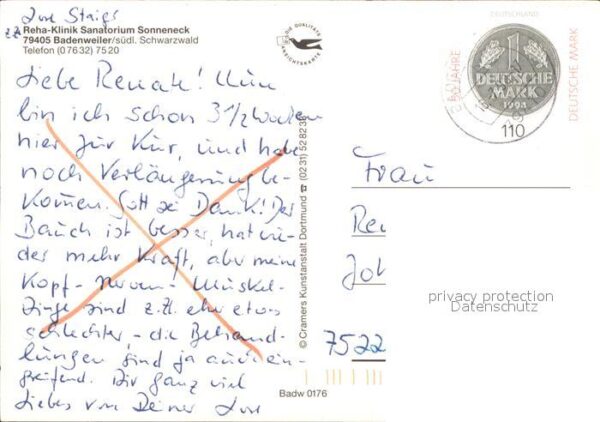 Reha-Klinik Sanatorium Sonneneck
79405 Badenweiler/südl. Schwarzwald
Telefon (07632) 7520
Liebe Renate! Nun
bin ich schon 3 1/2 Wochen
hier zur Kur, und habe
noch Verlängerung be-
kommen. Gott sei Dank! Der
Bauch ist besser, hat wie-
der mehr Kraft, aber meine
Kopf- Nerven- Muskel-
Dinge sind z.Zt. eher etwas
schlechter, - die Behand-
lungen sind ja auch ein-
greifend. Dir ganz viel
Liebes von Deiner
DIE QUALITÄTS
ANSICHTSKARTE
© Cramers Kunstanstalt Dortmund ☎ (0231) 52 82 38
Badw 0176
DEUTSCHLAND
50 JAHRE
DEUTSCHE MARK
1
DEUTSCHE
MARK
1994
110
Frau
Ren
Joh
privacy protection
Datenschutz
7522